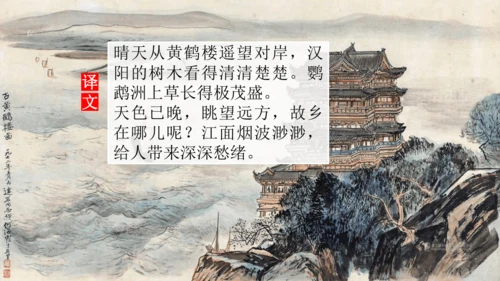 译文
晴天从黄鹤楼遥望对岸，汉
阳的树木看得清清楚楚。鹦
鹉洲上草长得极茂盛。
天色已晚，眺望远方，故乡
在哪儿呢？江面烟波渺渺，
给人带来深深愁绪。